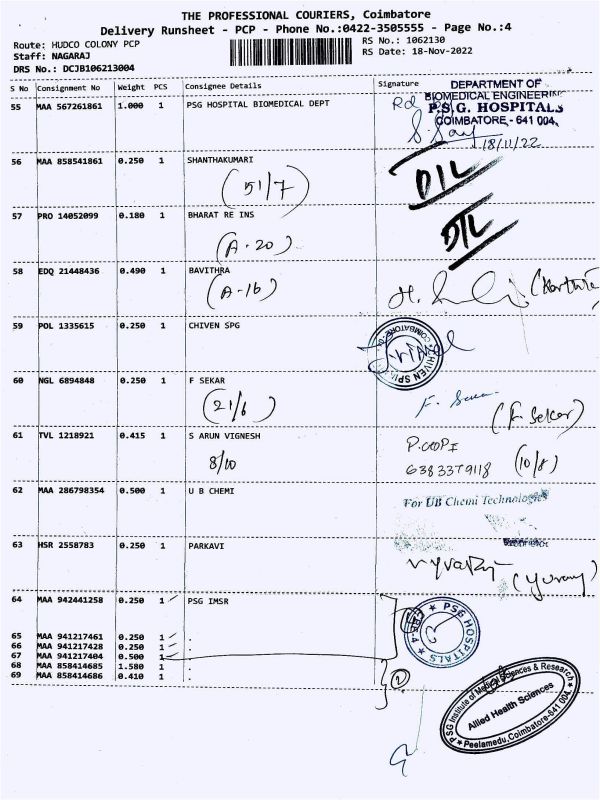 THE PROFESSIONAL COURIERS, Coimbatore
Delivery Runsheet - PCP - Phone No.:0422-3505555 - Page No.:4
Route: HUDCO COLONY PCP
RS No.: 1062130
Staff: NAGARAJ
RS Date: 18-Nov-2022
DRS No.: DCJB106213004
S No Consignment No Weight PCS Consignee Details Signature
DEPARTMENT OF
BIOMEDICAL ENGINEERING
P.S.G. HOSPITALS
COIMBATORE - 641 004.
18/11/22
55 MAA 567261861 1.000 1 PSG HOSPITAL BIOMEDICAL DEPT
56 MAA 858541861 0.250 1 SHANTHAKUMARI
(51/7)
D/L
57 PRO 14052099 0.180 1 BHARAT RE INS
(A-20)
D/L
58 EDQ 21448436 0.490 1 BAVITHRA
(A-16)
59 POL 1335615 0.250 1 CHIVEN SPG
60 NGL 6894848 0.250 1 F SEKAR
(21/6)
(F Seker)
61 TVL 1218921 0.415 1 S ARUN VIGNESH
8/10
P. GOPI
6383379118 (10/8)
62 MAA 286798354 0.500 1 U B CHEMI
For UB Chemi Technologies
63 HSR 2558783 0.250 1 PARKAVI
64 MAA 942441258 0.250 1 PSG IMSR
PSG HOSPITALS
65 MAA 941217461 0.250 1 .
66 MAA 941217428 0.250 1 .
67 MAA 941217404 0.500 1 .
68 MAA 858414685 1.580 1 .
69 MAA 858414686 0.410 1 .
2
PSG Institute of Medical Sciences & Research
Allied Health Sciences
Peelamedu, Coimbatore-641 004.